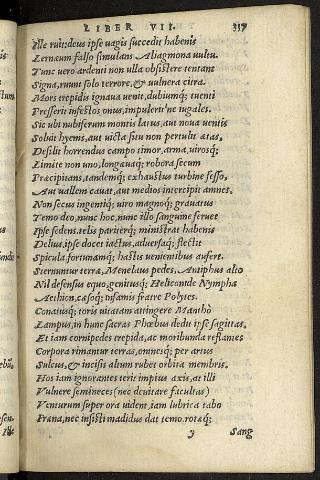 LIBER VII. 337
Ille ruit: deus ipse vagis succedit habenis
Lernæum falso simulans Aliagmona vultu.
Tunc vero ardenti non ulla obsistere tentant
Signa, ruunt solo terrore, & vulnera citra
Mors trepidis ignava venit, dubiumq; tuenti
Presserit infestos onus, impulerit'ne iugales.
Sic ubi nubiferum montis latus, aut nova ventis
Solvit hyems, aut victa situ non pertulit ætas,
Desilit horrendus campo timor, arma, virosq;
Limite non uno, longævaq; robora secum
Præcipitans, tandemq; exhaustus turbine fesso,
Aut vallem cavat, aut medios intercipit amnes.
Non secus ingentiq; viro magnoq; gravatus
Temo deo, nunc hoc, nunc illo sanguine fervet
Ipse sedens telis pariterq; ministrat habenis
Delius, ipse docet iactus, adversaq; flectit
Spicula, fortunamq; hastis venientibus aufert.
Sternuntur terra, Menelaus pedes, Antiphus alto
Nil defensus equo, genitusq; Heliconide Nympha
Aethion, cæsoq; infamis fratre Polytes.
Conatusq; toris vitatam attingere Manthò
Lampus, in hunc sacras Phœbus dedit ipse sagittas.
Et iam cornipedes trepida, ac moribunda reflantes
Corpora rimantur terras, omnesq; per artus
Sulcus, & incisis altum rubet orbita membris.
Hos iam ignorantes terit impius axis, at illi
Vulnere semineces (nec devitare facultas)
Venturum super ora vident, iam lubrica tabo
Frana, nec insisti madidus dat temo, rotæq;
y Sang